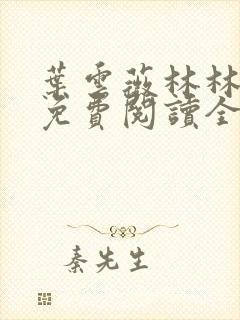 葉雲薇林林
免費閱讀全
秦先生